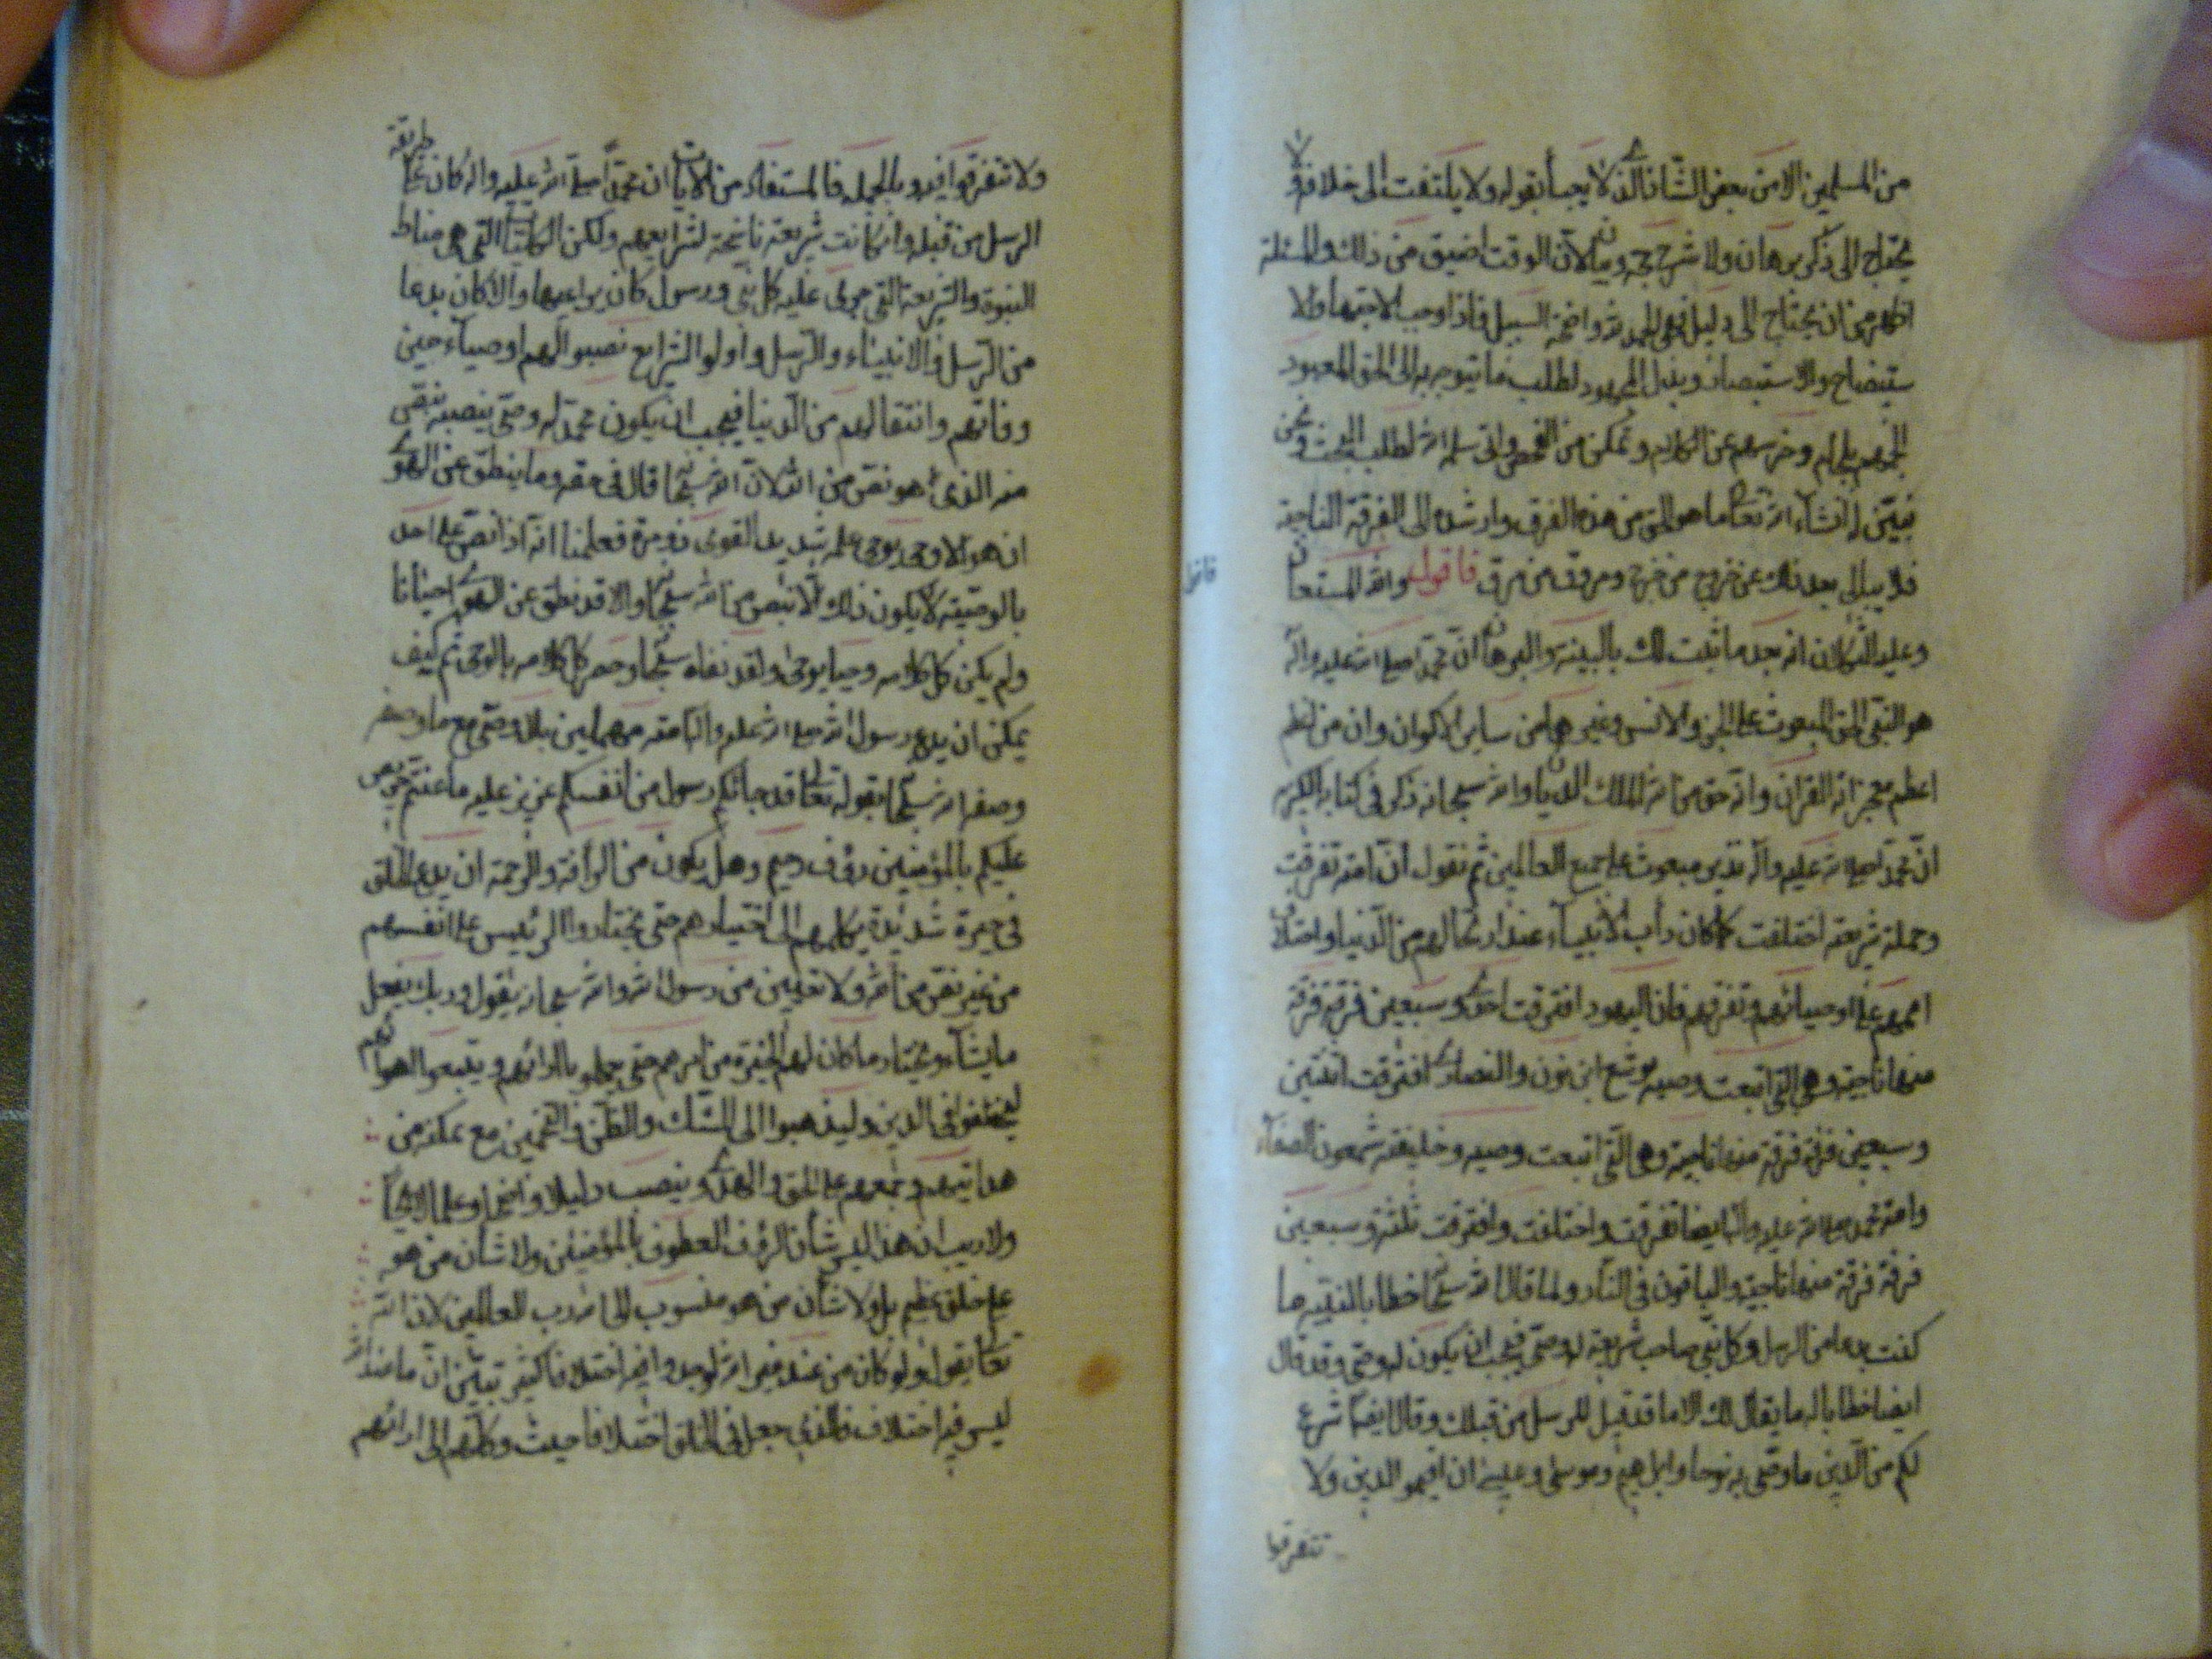 من المسلمين الا من بعض الشاذ الذي لا يعبأ بقوله ولا يلتفت الى خلافه ولا
يحتاج الى ذكر برهان ولا شرح حجج وبيان لان الوقت اضيق من ذلك والمسئلة
اظهر من ان يحتاج الى دليل فهى لحمد الله واضحة السبيل فاذا وجب الاجتهاد والا
ستيضاح والاستبصار وبذل المجهود لطلب ما يتوجه به الى الحق المعبود
وتمكن من الفحص والى سلمه الله لطلب البحث ونحن
نبين له انشاء الله تعالى ما هو الحق من هذه الفرق وارشده الى الفرقة الناجية
فلا يبالى بعد ذلك عن خروج من خرج ومروق من مرق فاقول والله المستعان
فاقول
وعليه التكلان انه بعد ما ثبت لك بالبينة والبرهان ان محمدا صلى الله عليه وآله
هو النبى الحق المبعوث على الجن والانس وغيرهما من ساير الاكوان وان من
اعظم معجزاته القرآن وانه حق من الله الملك الديان والله سبحانه ذكر فى كتابه الكريم
ان محمدا صلى الله عليه وآله نذير مبعوث على جميع العالمين ثم نقول ان امته تفرقت
وحملة شريعته اختلفت كما كان دأب الانبياء عند ارتحالهم من الدنيا واختلاف
اممهم على اوصيائهم وتفرقهم فان اليهود افترقت احدى وسبعين فرقة فرقة
منها ناجية وهى التى اتبعت وصيه يوشع ابن نون والنصارى افترقت اثنتين
وسبعين فرقة فرقة منها ناجية وهى التى اتبعت وصيه وخليفته شمعون الصفاء
وامة محمد صلى الله عليه وآله ايضا تفرقت واختلفت وافترقت ثلثة وسبعين
فرقة فرقة منها ناجية والباقون فى النار ولما قال الله سبحانه خطابا لنبيه ما
كنت بدعا من الرسل وكل نبى صاحب شريعة له وصى فيجب ان يكون له وصى وقد قال
ايضا خطابا له ما يقال لك الا ما قد قيل للرسل من قبلك وقال ايضا شرع
لكم من الدين ما وصى به نوحا وابراهيم وموسى وعيسى ان اقيموا الدين ولا
تتفرقوا
ولا تتفرقوا فيه وبالجمله فالمستفاد من الايات ان محمدا صلى الله عليه وآله كان على طريقة
الرسل من قبله وان كانت شريعته ناسخة لشرايعهم ولكن الكليات التى هى مناط
النبوة والشريعة التى جرى عليه كل نبى ورسول كان يراعيها والا كان بدعا
من الرسل والانبياء والرسل واولو الشرايع نصبوا لهم اوصياء حين
وفاتهم وانتقالهم من الدنيا فيجب ان يكون محمد له وصى ينصبه بنص
منه الذى هو نص من الله لان الله سبحانه قال فى حقه وما ينطق عن الهوى
ان هو الا وحى يوحى علمه شديد القوى ذو مرة فعلمنا انه اذا نص على احد
بالوصية لا يكون ذلك الا بنص من الله سبحانه والا قد نطق عن الهوى احيانا
ولم يكن كل كلامه وحيا يوحى ولقد نفاه سبحانه وحصر كل كلامه بالوحى ثم كيف
يمكن ان يدع رسول الله صلى الله عليه وآله امته مهملين بلا وصى مع ما وصفه
وصفه الله سبحانه بقوله تعالى قد جائكم رسول من انفسكم عزيز عليه ما عنتم حريص
عليكم بالمؤمنين رؤف رحيم وهل يكون من الرأفة والرحمة ان يدع الخلق
فى حيرة شديدة يكلهم الى اختيارهم حتى يختاروا الرئيس على انفسهم
من غير نص من الله ولا تعيين من رسول الله والله سبحانه يقول وربك يفعل
ما يشاء ويختار ما كان لهم الخيرة من امرهم حتى يعملوا بارائهم ويتبعوا اهوائهم
ليختلفوا فى الدين وليذهبوا الى الشك والظن والتخمين مع تمكنه من
هدايتهم وجمعهم على الحق والهدى وينصب دليلا واضحا وعلما لائحا
ولا ريب ان هذا ليس شأن الرؤف العطوف بالمؤمنين ولا شأن من هو
على خلق عظيم بل ولا شأن من هو منسوب الى الله رب العالمين لان الله
تعالى يقول ولو كان من عند غير الله لوجدوا فيه اختلافا كثيرا تبين ان ما عند الله
ليس فيه اختلاف فالذى جعل فى الخلق اختلافا حيث وكلهم الى ارائهم